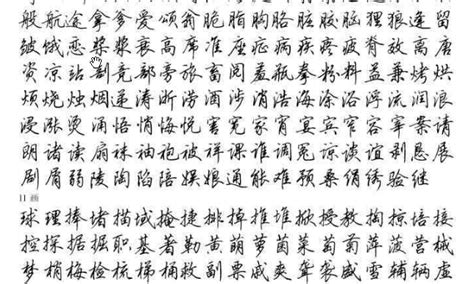 般航途拿爹爱颂翁脆脂胸胳脏胶脑狸狼逢留
皱饿恶桨浆衰高席准座症病疾疼疲脊效离唐
资凉站剖竞部旁旅畜阅羞瓶拳粉料益兼烤烘
烦烧烛烟递涛浙涝酒涉消浩海涂浴浮流润浪
浸涨烫涌悟悄悔悦害宽家宵宴宾窄容宰案请
朗诸读扇袜袖袍被祥课谁调冤谅谈谊剥恳展
剧屑弱陵陶陷陪娱娘通能难预桑绢绣验继
11画
球理捧堵描域掩捷排掉推堆掀授教掏掠培接
控探据掘职基著勒黄萌萝菌菜萄菊萍菠营械
梦梢梅检梳梯桶救副票戚爽聋袭盛雪辅辆虚